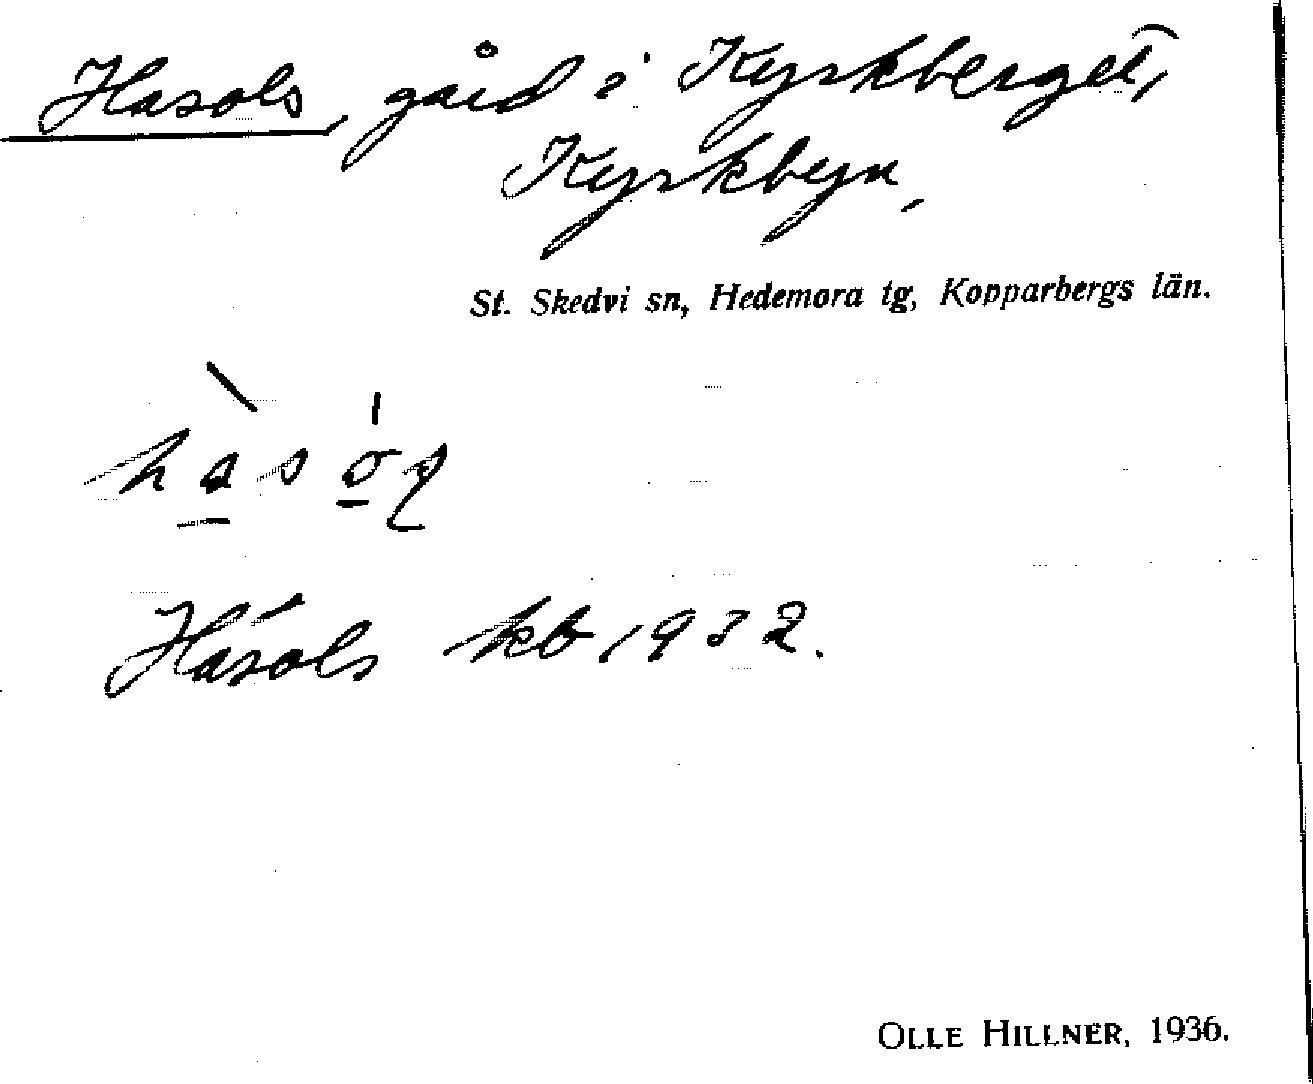 Hasols, gård i Kyrkberget,
Kyrkbyn,
St. Skedvi sn, Hedemora tg, Kopparbergs län.
Håsols kb 1932.
OLLE HILLNER, 1936.